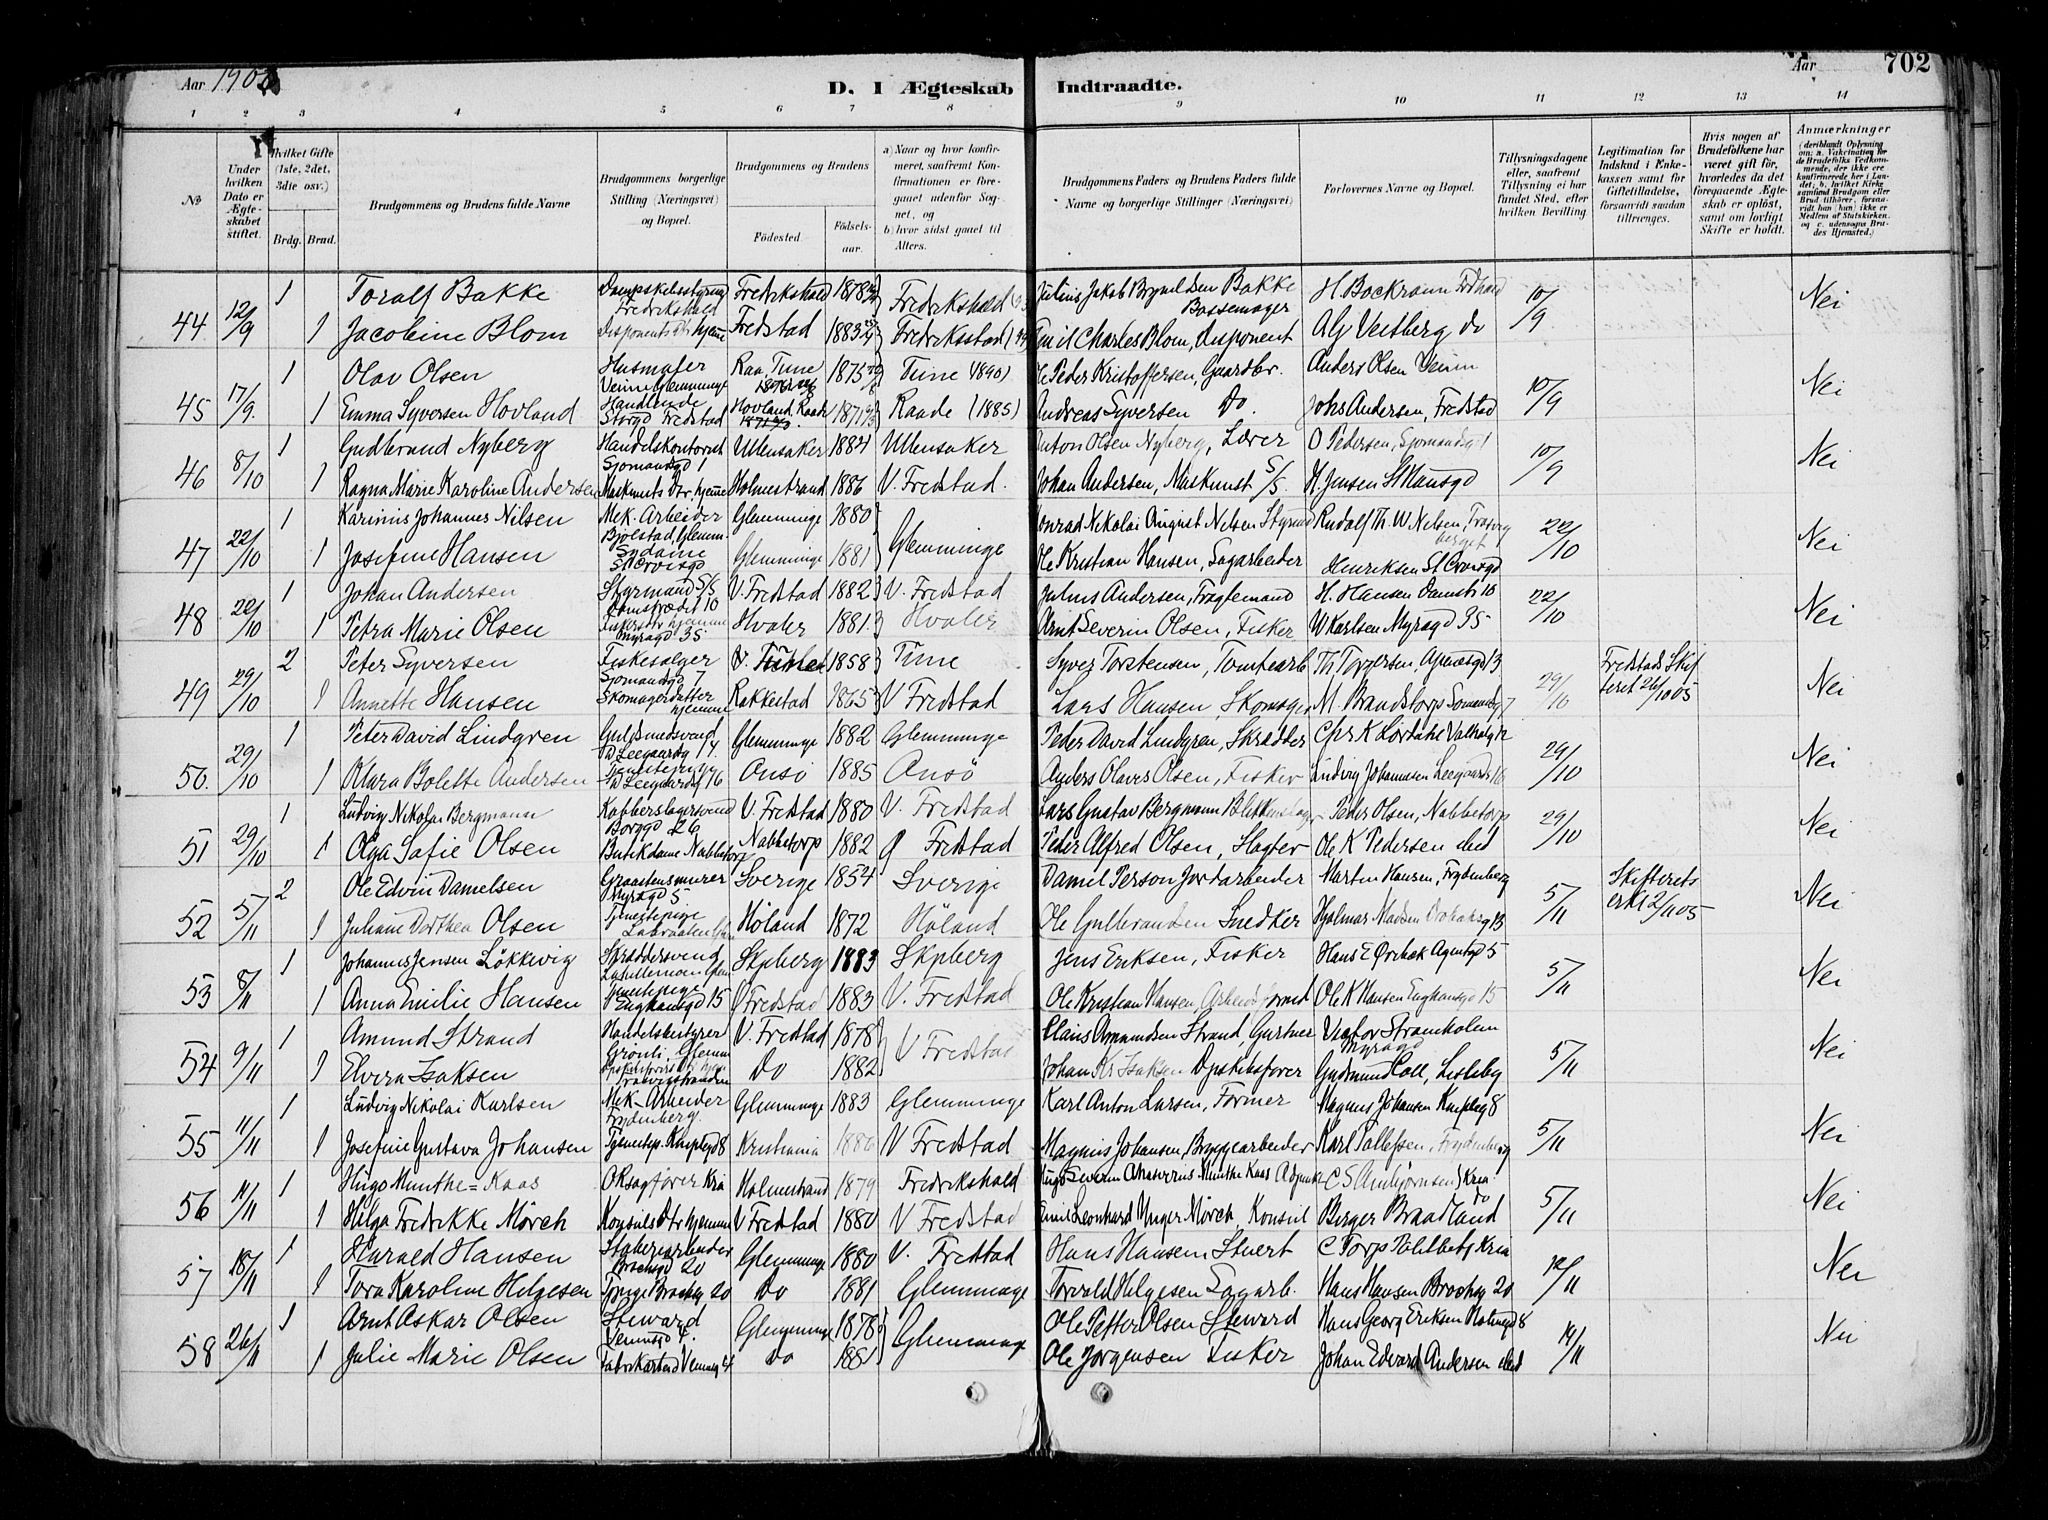 Aar 190
D. I Ægteskab Indtraadte.
Aar 702
1 2 3 4 5 6 7 8 9 10 11 12 13 14
№
Under hvilken Dato er Ægteskabet stiftet.
Hvilket Gifte (1ste, 2det, 3die osv.)
Brdg. Brud.
Brudgommens og Brudens fulde Navne
Brudgommens borgerlige Stilling (Næringsvei) og Bopæl.
Brudgommens og Brudens
Fødested
Fødselsaar.
a) Naar og hvor konfirmeret, saafremt Konfirmationen er foregaaet udenfor Sognet, og
b) hvor sidst gaaet til Alters.
Brudgommens Faders og Brudens Faders fulde Navne og borgerlige Stillinger (Næringsvei)
Forlovernes Navne og Bopæl.
Tillysningsdagene eller, saafremt Tillysning ei har fundet Sted, efter hvilken Bevilling
Legitimation for Indskud i Enkekassen samt for Giftetilladelse, forsaavidt saadan tiltrænges.
Hvis nogen af Brudefolkene har været gift før, hvorledes da det foregaaende Ægteskab er opløst, samt om lovligt Skifte er holdt.
Anmærkninger (deriblandt Oplysning om: a. Vaccination for de Brudefolks Vedkommende, der ikke er konfirmerede her i Landet; b. hvilket Kirkesamfund Brudgom eller Brud tilhører, forsaavidt han (hun) ikke er Medlem af Statskirken. og c. udensogns Brudes Hjemsted.)
1 Toralf Bakke Fredrikshald 1878 Fredrikshald Bakke 10/9 Nei
44 12/9 1 Jacobine Blom Disponents Dtr hjemme Fredstad 1883 Fredriksstad Charles Blom, Disponent Alf Vestberg do
1 Olav Olsen Raa, Tune 1875 Tune Peder Kristoffersen, Gaardbr. Anders Olsen 10/9 Nei
45 17/9. 1 Emma Syversen Hovland Fredstad Hovland, Raade 1871 Raade (1885) Andreas Syversen Do. Johs Andersen, Fredstad
1 Gudbrand Nyberg Handelskontorist Sjomandsgd 1 Ullensaker 1884 Ullensaker Anton Olsen Nyberg, Lærer O Pedersen, Sjomandsg 1 10/9 Nei
46 8/10 1 Ragna Marie Karoline Andersen Maskinists Dtr hjemme Holmestrand 1886 V. Fredstad. Johan Andersen, Maskinist S/S. H. Jensen
1 Karinius Johannes Nilsen Mek. Arbeider Glemminge 1880 Glemminge Konrad Nikolai August Nilsen Rudolf Th. W Nelsen 22/10 Nei
47 22/10 1 Josefine Hansen Sydame Glemminge 1881 Ole Kristian Hansen, Sagarbeider Henriksen
1 Johan Andersen Styrmand S/S Damstrædet 10 V. Fredstad 1882 V. Fredstad Julius Andersen, H. Hansen Damstr 10 22/10 Nei
48 22/10 1 Petra Marie Olsen Myragd 35 Hvaler 1881 Hvaler Arnt Severin Olsen, Fisker W Karlsen Myragd 35
2 Peter Syversen Fiskesælger Sjomandsgd 7 1858 Tune Syver Torstensen, Tomtearb Th Torgersen, 29/10 Fredstads Skifteret 26/10 05 Nei
49 29/10 1 Annette Hansen Skomagerdatter hjemme Rakkestad 1865 V Fredstad Lars Hansen, Skomager M. Brandstorp
1 Peter David Lindgren Guldsmedsvend Glemminge 1882 Glemminge Peder David Lindgren, Skrædder Chr K 29/10 Nei
50. 29/10 1 Klara Bolette Andersen Onsö 1885 Onsö Anders Olaves Olsen, Fisker Ludvig Johannesen
1 Ludvig Nikolai Bergmann Kobberslagersvend Borggd 26 V. Fredstad 1880 V. Fredstad Lars Gustav Bergmann Peder Olsen, Nabbetorp 29/10 Nei
51 29/10 1 Olga Sofie Olsen Butikdame Nabbetorp Nabbetorp 1882 Fredstad Peder Alfred Olsen, Slagter Ole K Pedersen sted
2 Ole Edvin Danielsen Graastensmurer Myragd 5 Sverige 1854 Sverige Daniel Person Jordarbeider Martin Hansen, Frydenberg 5/11 Skifterets erkl 2/11 05 Nei
52 5/11 1 Juliane Dorthea Olsen Tjenestepige Höland 1872 Höland Ole Gulbrandsen Snedker Hjalmar Madsen
1 Johannes Jensen Lökkevig Skræddersvend Skjeberg 1883 Skjeberg Jens Eriksen, Fisker Hans E Ørebæk Agentgd 5 5/11 Nei
53 8/11 1 Anna Emilie Hansen Tjenestepige Enghausgd 15 V Fredstad 1883 V. Fredstad Ole Kristian Hansen, Ole K Hansen Enghausgd 15
1 Amund Strand Handelsbestyrer V. Fredstad 1878 V Fredstad Claus Amundsen Strand, Gartner Viktor Stramholm Myragd 5/11 Nei
54 9/11 1 Elvira Isaksen Do 1882 Johan Kr Isaksen Dpskibsfører Gudmund Coll, Lisleby
1 Ludvig Nikolai Karlsen Mek. Arbeider Frydenberg Glemminge 1883 Glemminge Karl Anton Larsen, Former Magnus Johansen 5/11 Nei
55 11/11 1 Josefine Gustava Johansen Kristiania 1886 V Fredstad Magnus Johansen, Bryggearbeider Karl Frydenberg
1 Hugo Munthe=Kaas Oksagfører Kria Holmestrand 1879 Fredrikshald Hugo Severin Munthe Kaas C S Ambjørnsen, Kria 5/11 Nei
56 11/11 1 Helga Fredrikke Mörch Konsuls Dtr hjemme V Fredstad 1880 V Fredstad Emil Leonhard Unger Mörch, Konsul Berger Braadland do
1 Harald Hansen Brochsgd 20 Glemminge 1880 V. Fredstad Hans Hansen Stuert C Torp Kria 12/11 Nei
57 18/11 1 Tora Karoline Helgesen Brochsg 20 Do 1881 Glemminge Torvald Helgesen Sagarb. Hans Hansen Brochsg 20
1 Arnt Oskar Olsen Steward Glemminge 1878 Glemminge Ole Petter Olsen Steward Hans Georg Eriksen 19/11 Nei
58 26/11 1 Julie Marie Olsen Do 1881 Ole Jorgensen Fisker Johan Edvard Andersen sted